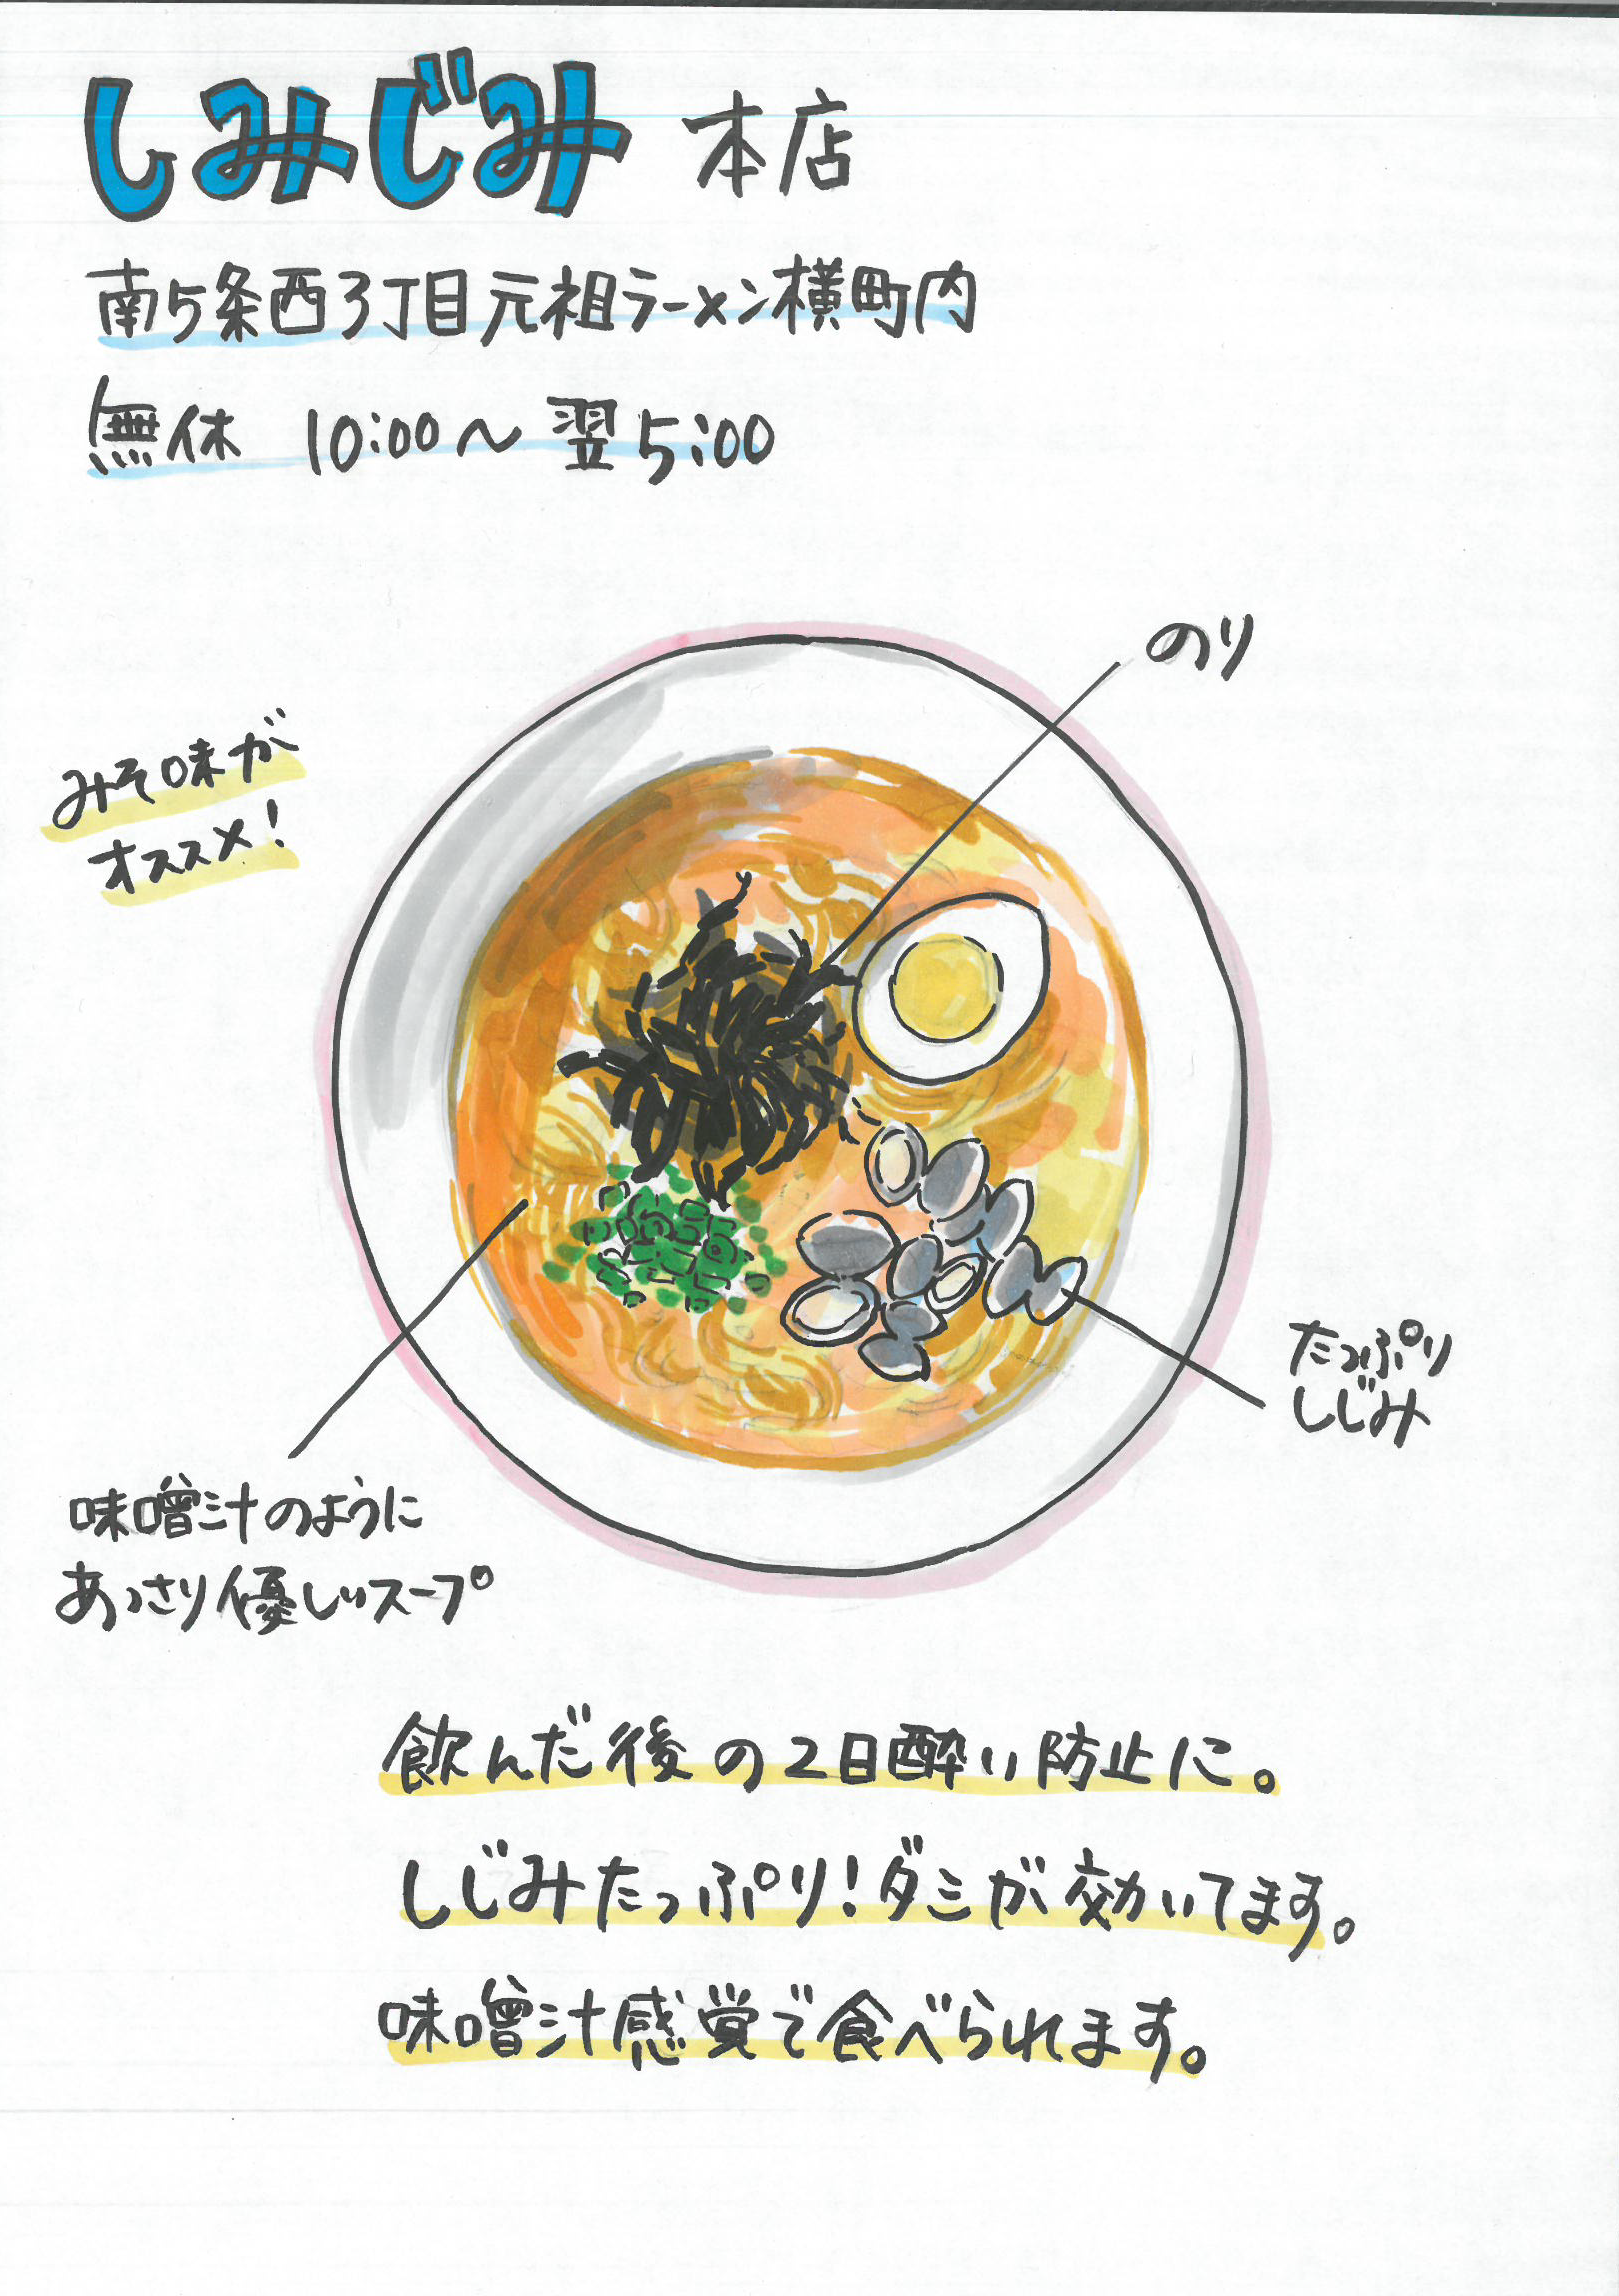 しみじみ 本店
南5条西3丁目元祖ラーメン横町内
無休 10:00〜翌5:00
のり
みそ味が
オススメ!
たっぷり
しじみ
味噌汁のように
あっさり優しいスープ
飲んだ後の2日酔い防止に。
しじみたっぷり!ダシが効いてます。
味噌汁感覚で食べられます。